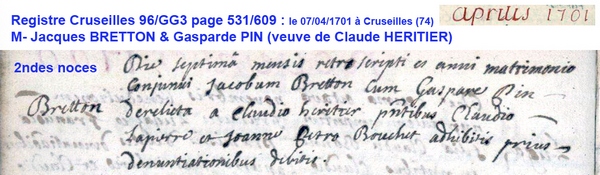 Registre Cruseilles 96/GG3 page 531/609 : le 07/04/1701 à Cruseilles (74)
aprilis 1701
M- Jacques BRETTON & Gasparde PIN (veuve de Claude HERITIER)
2ndes noces
Die septima mensis retroscripti et anni matrimonio
conjunxi Jacobum Bretton cum Gaspare Pin
Bretton
derelicta a claudio heritier pntibus Claudio
lapierre et Joanne Petro Bouchet adhibitis prius
denuntiationibus debitis.